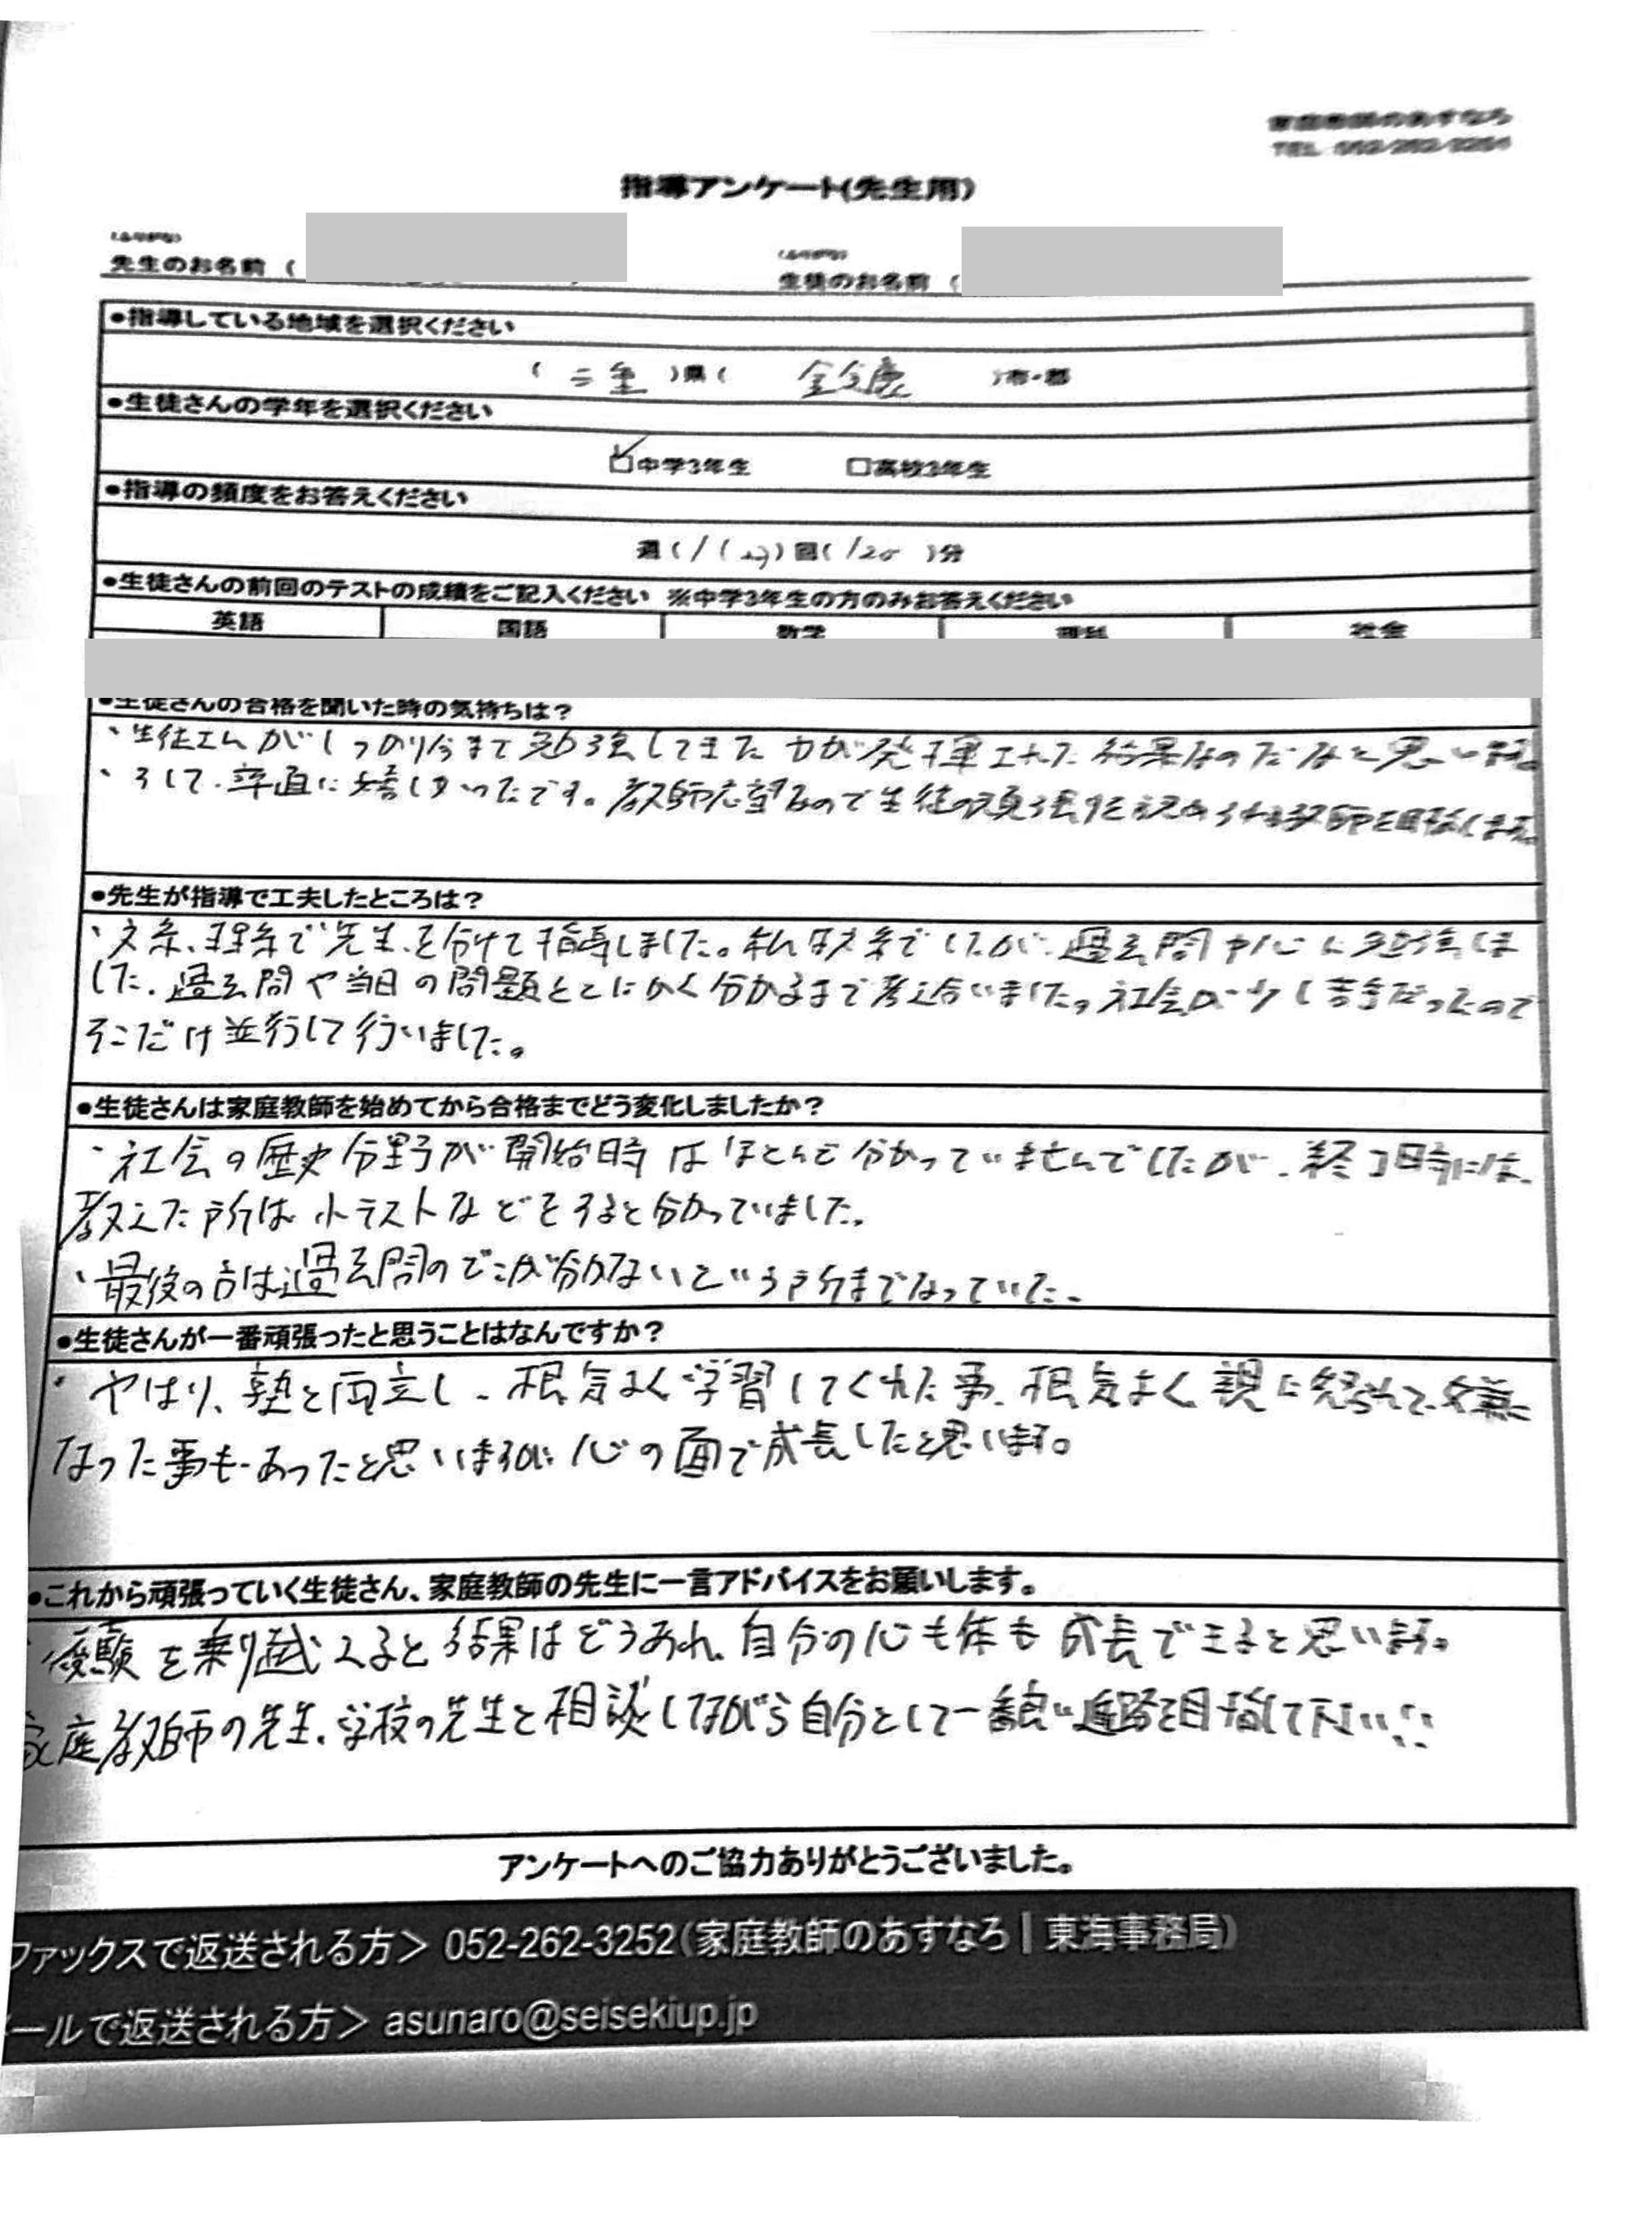 家庭教師のあすなろ
TEL
指導アンケート(先生用)
(ふりがな)
先生のお名前 (
(ふりがな)
生徒のお名前 (
●指導している地域を選択ください
( 三重 )県( 鈴鹿 )市・郡
●生徒さんの学年を選択ください
☑中学3年生 □高校3年生
●指導の頻度をお答えください
週( 1 )回( 120 )分
●生徒さんの前回のテストの成績をご記入ください ※中学3年生の方のみお答えください
英語 国語 数学 理科 社会
●生徒さんの合格を聞いた時の気持ちは?
・生徒さんがしっかり今まで勉強してきた力が発揮された結果なのだなと思います。
・そして、率直に嬉しかったです。教師志望なので生徒の頑張りを認められる教師を目指します。
●先生が指導で工夫したところは?
・文系、理系で先生を分けて指導しました。私は文系でしたが、過去問中心に勉強しま
した。過去問や当日の問題をとにかく分かるまで考え合いました。社会が少し苦手だったので
そこだけ並行して行いました。
●生徒さんは家庭教師を始めてから合格までどう変化しましたか?
・社会の歴史分野が開始時はほとんど分かっていませんでしたが、終了時には、
教えた所は小テストなどをすると分かっていました。
・最後の方は過去問のどこが分からないという所までなっていた。
●生徒さんが一番頑張ったと思うことはなんですか?
・やはり、塾と両立し、根気よく学習してくれた事、根気よく、親に怒られて、嫌に
なった事もあったと思いますが、心の面で成長したと思います。
●これから頑張っていく生徒さん、家庭教師の先生に一言アドバイスをお願いします。
・受験を乗り越えると結果はどうあれ、自分の心も体も成長できると思います。
家庭教師の先生、学校の先生と相談しながら自分として一番良い進路を目指して下さい!!
アンケートへのご協力ありがとうございました。
ファックスで返送される方> 052-262-3252(家庭教師のあすなろ | 東海事務局)
ールで返送される方> asunaro@seisekiup.jp